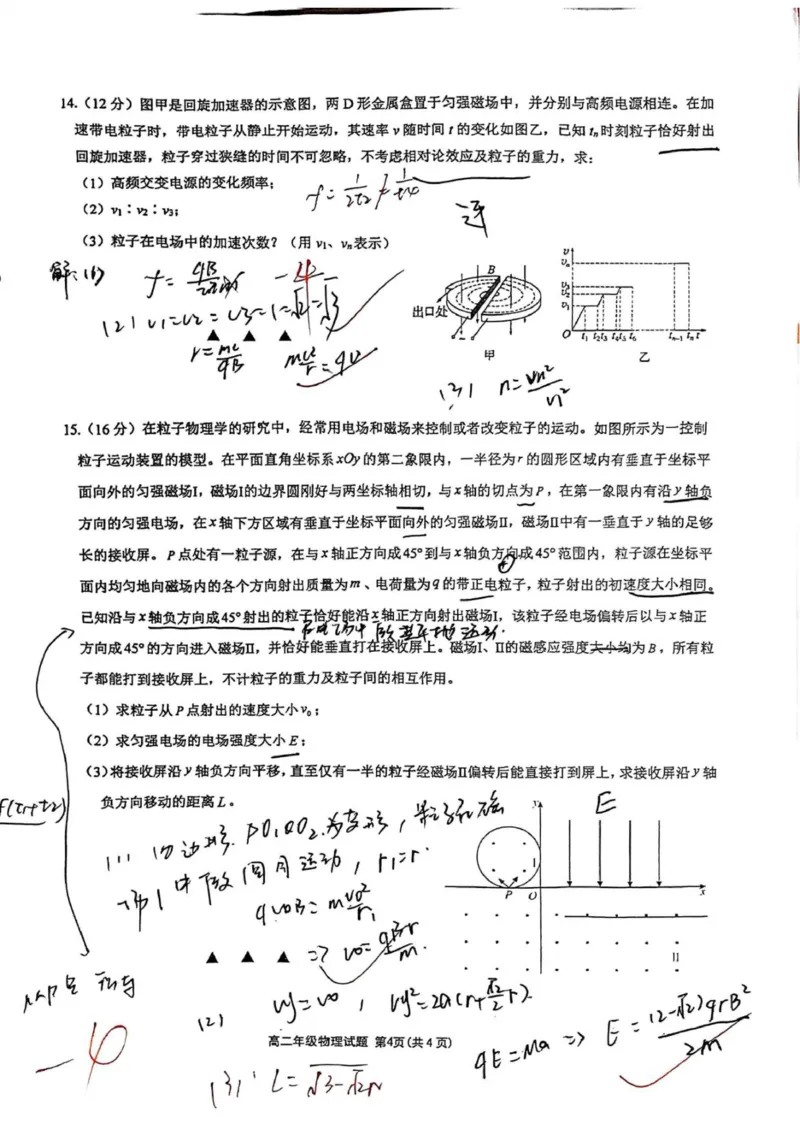 14.（12 分）图甲是回旋加速器的示意图，两 D 形金属盒置于匀强磁场中，并分别与高频电源相连。在加
速带电粒子时，带电粒子从静止开始运动，其速率 v 随时间 t 的变化如图乙，已知 tn 时刻粒子恰好射出
回旋加速器，粒子穿过狭缝的时间不可忽略，不考虑相对论效应及粒子的重力，求：
（1）高频交变电源的变化频率；
（2）v1：v2：v3；
（3）粒子在电场中的加速次数？（用 v1、vn表示）
解：(1)
f= qB/2πm
-4
(2) v1=v2=v3=1=√2=√3
▲ ▲ ▲
(3) n=vn²/v1²
B
出口处
甲
v
vn
v3
v2
v1
O t1 t2 t3 t4 t5 t6 tn-1 tn t
乙
15.（16 分）在粒子物理学的研究中，经常用电场和磁场来控制或者改变粒子的运动。如图所示为一控制
粒子运动装置的模型。在平面直角坐标系 xOy 的第二象限内，一半径为 r 的圆形区域内有垂直于坐标平
面向外的匀强磁场Ⅰ，磁场Ⅰ的边界圆刚好与两坐标轴相切，与 x 轴的切点为 P，在第一象限内有沿 y 轴负
方向的匀强电场，在 x 轴下方区域有垂直于坐标平面向外的匀强磁场Ⅱ，磁场Ⅱ中有一垂直于 y 轴的足够
长的接收屏。P 点处有一粒子源，在与 x 轴正方向成 45° 到与 x 轴负方向成 45° 范围内，粒子源在坐标平
面内均匀地向磁场内的各个方向射出质量为 m、电荷量为 q 的带正电粒子，粒子射出的初速度大小相同。
已知沿与 x 轴负方向成 45° 射出的粒子恰好能沿 x 轴正方向射出磁场Ⅰ，该粒子经电场偏转后以与 x 轴正
方向成 45° 的方向进入磁场Ⅱ，并恰好能垂直打在接收屏上。磁场Ⅰ、Ⅱ的磁感应强度大小均为 B，所有粒
子都能打到接收屏上，不计粒子的重力及粒子间的相互作用。
（1）求粒子从 P 点射出的速度大小 v0；
（2）求匀强电场的电场强度大小 E；
（3）将接收屏沿 y 轴负方向平移，直至仅有一半的粒子经磁场Ⅱ偏转后能直接打到屏上，求接收屏沿 y 轴
负方向移动的距离 L。
场1中做圆周运动，r1=r
qv0B=mv0²/r1
▲ ▲ ▲ => v0=qBr/m.
y
E
Ⅰ
P O x
Ⅱ
(2) vy=v0，vy²=2a(r+√2/2 r).
qE=ma => E=(2-√2)qrB²/2m
-4
高二年级物理试题 第4页(共 4 页)
(3) L=√3-√2r